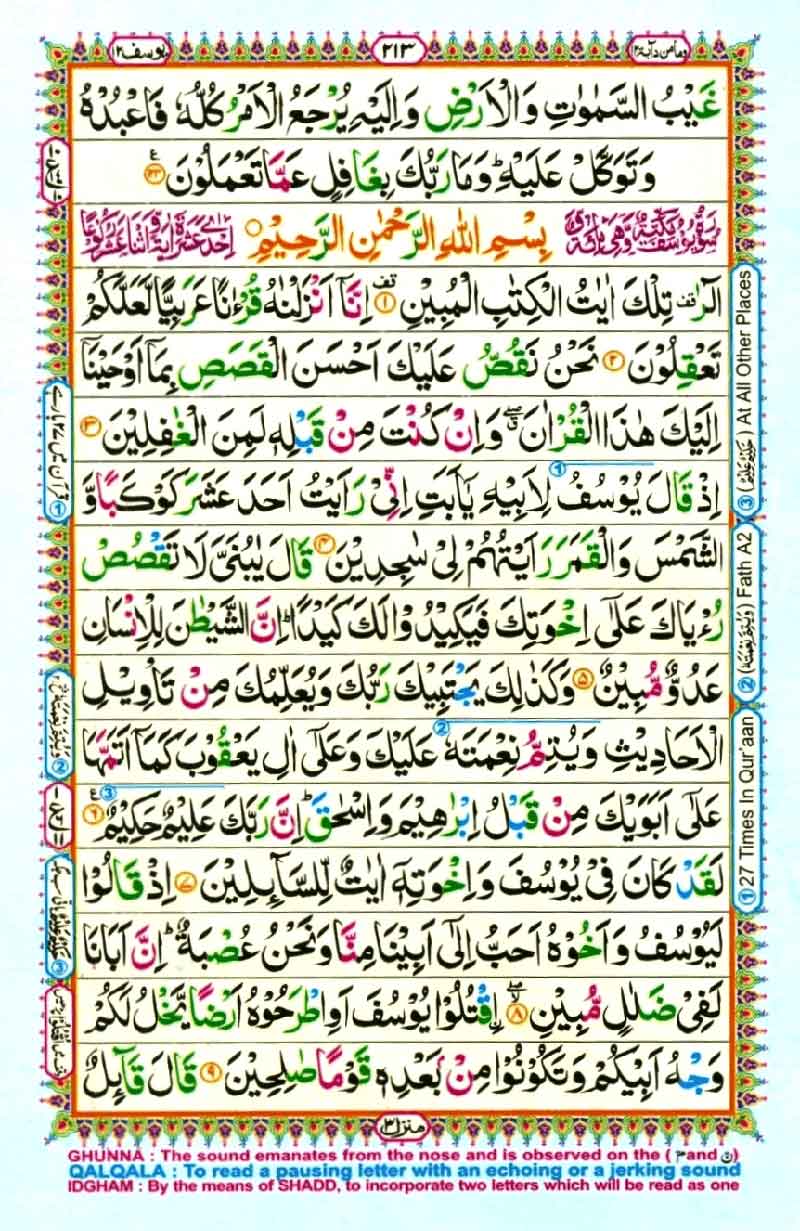 يوسف ١٢
٢١٣
وما من دآبة ١٢
غَيْبُ السَّمٰوٰتِ وَالْاَرْضِ وَاِلَيْهِ يُرْجَعُ الْاَمْرُ كُلُّهٗ فَاعْبُدْهُ
وَتَوَكَّلْ عَلَيْهِ ؕ وَمَا رَبُّكَ بِغَافِلٍ عَمَّا تَعْمَلُوْنَ ﴿۱۲۳﴾
بِسْمِ اللّٰهِ الرَّحْمٰنِ الرَّحِيْمِ
الٓرٰ تِلْكَ اٰيٰتُ الْكِتٰبِ الْمُبِيْنِ ﴿۱﴾ اِنَّاۤ اَنْزَلْنٰهُ قُرْءٰنًا عَرَبِيًّا لَّعَلَّكُمْ
تَعْقِلُوْنَ ﴿۲﴾ نَحْنُ نَقُصُّ عَلَيْكَ اَحْسَنَ الْقَصَصِ بِمَاۤ اَوْحَيْنَاۤ
اِلَيْكَ هٰذَا الْقُرْاٰنَ ۖ وَاِنْ كُنْتَ مِنْ قَبْلِهٖ لَمِنَ الْغٰفِلِيْنَ ﴿۳﴾
اِذْ قَالَ يُوْسُفُ لِاَبِيْهِ يٰۤاَبَتِ اِنِّيْ رَاَيْتُ اَحَدَ عَشَرَ كَوْكَبًا وَّ
الشَّمْسَ وَالْقَمَرَ رَاَيْتُهُمْ لِيْ سٰجِدِيْنَ ﴿۴﴾ قَالَ يٰبُنَيَّ لَا تَقْصُصْ
رُءْيَاكَ عَلٰۤى اِخْوَتِكَ فَيَكِيْدُوْا لَكَ كَيْدًا ؕ اِنَّ الشَّيْطٰنَ لِلْاِنْسَانِ
عَدُوٌّ مُّبِيْنٌ ﴿۵﴾ وَكَذٰلِكَ يَجْتَبِيْكَ رَبُّكَ وَيُعَلِّمُكَ مِنْ تَاْوِيْلِ
الْاَحَادِيْثِ وَيُتِمُّ نِعْمَتَهٗ عَلَيْكَ وَعَلٰۤى اٰلِ يَعْقُوْبَ كَمَاۤ اَتَمَّهَا
عَلٰۤى اَبَوَيْكَ مِنْ قَبْلُ اِبْرٰهِيْمَ وَاِسْحٰقَ ؕ اِنَّ رَبَّكَ عَلِيْمٌ حَكِيْمٌ ﴿۶﴾
لَقَدْ كَانَ فِيْ يُوْسُفَ وَاِخْوَتِهٖۤ اٰيٰتٌ لِّلسَّآئِلِيْنَ ﴿۷﴾ اِذْ قَالُوْا
لَيُوْسُفُ وَاَخُوْهُ اَحَبُّ اِلٰۤى اَبِيْنَا مِنَّا وَنَحْنُ عُصْبَةٌ ؕ اِنَّ اَبَانَا
لَفِيْ ضَلٰلٍ مُّبِيْنٍ ﴿۸﴾ اِۨقْتُلُوْا يُوْسُفَ اَوِ اطْرَحُوْهُ اَرْضًا يَّخْلُ لَكُمْ
وَجْهُ اَبِيْكُمْ وَتَكُوْنُوْا مِنْ بَعْدِهٖ قَوْمًا صٰلِحِيْنَ ﴿۹﴾ قَالَ قَآئِلٌ
③ (عَلِيْمٌ حَكِيْمٌ) At All Other Places
② (وَيُتِمُّ نِعْمَتَهٗ) Fath A2
① 27 Times In Qur'aan
منزل ٣
GHUNNA : The sound emanates from the nose and is observed on the (م and ن)
QALQALA : To read a pausing letter with an echoing or a jerking sound
IDGHAM : By the means of SHADD, to incorporate two letters which will be read as one